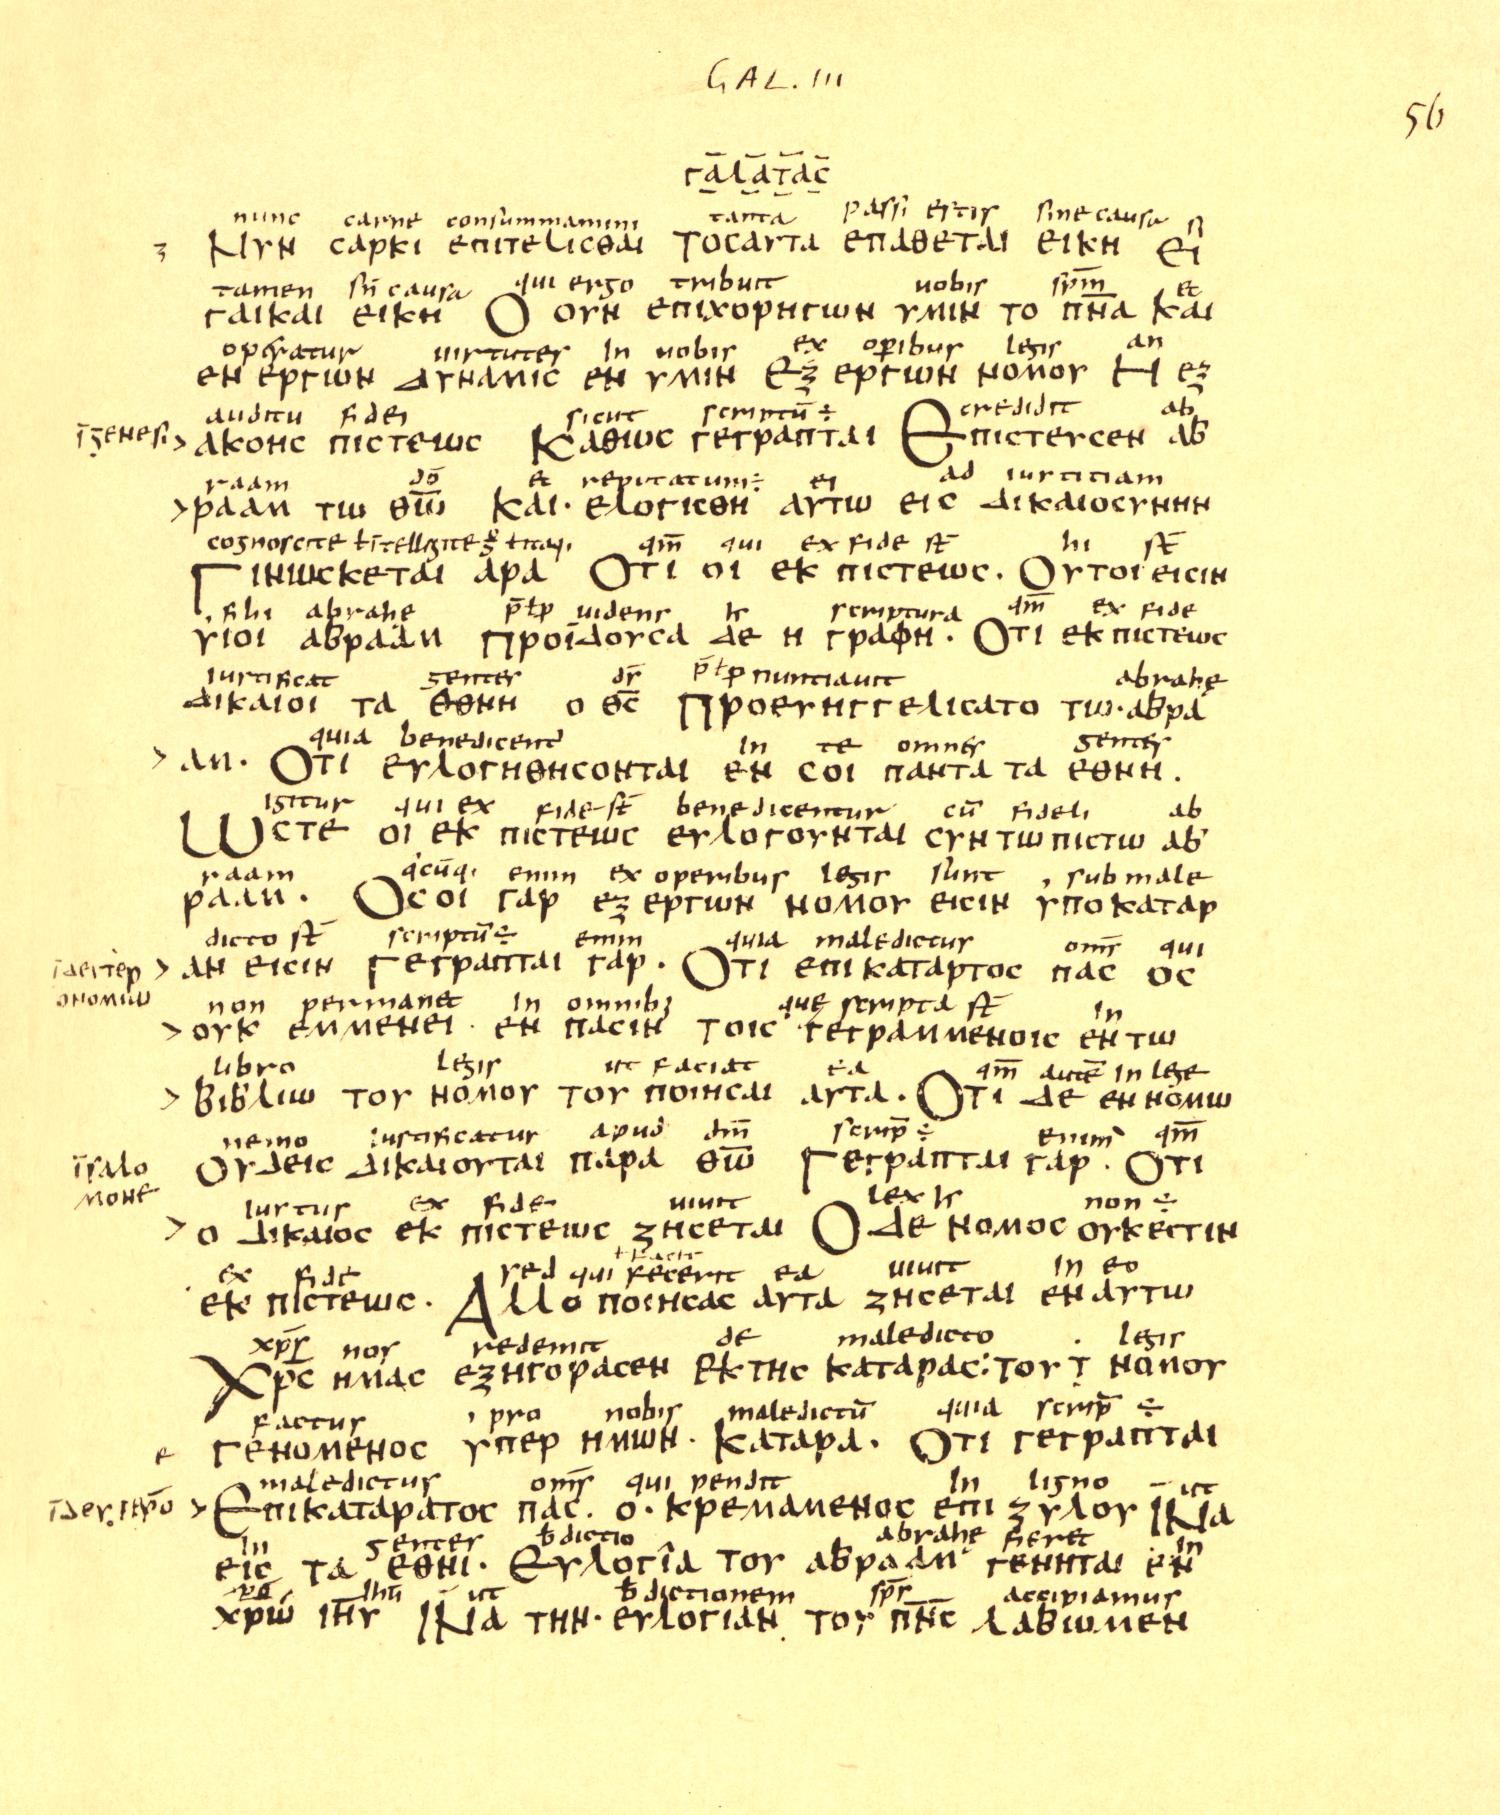 GAL. III
56
ΓΑΛΑΤΑС
nunc carne consummamini tanta passi estis sine causa si
ΝΥΝ СΑΡΚΙ ΕΠΙΤΕΛΙСΘΑΙ ΤΟСΑΥΤΑ ΕΠΑΘΕΤΑΙ ΕΙΚΗ ΕΙ
tamen sin̄ causa qui ergo tribuit uobis sp̄m et
ΓΑΙΚΑΙ ΕΙΚΗ Ο ΟΥΝ ΕΠΙΧΟΡΗΓΩΝ ΥΜΙΝ ΤΟ Π̄Ν̄Α ΚΑΙ
operatur uirtutes in uobis ex operibus legis an
ΕΝ ΕΡΓΩΝ ΔΥΝΑΜΙС ΕΝ ΥΜΙΝ ΕΞ ΕΡΓΩΝ ΝΟΜΟΥ Η ΕΞ
auditu fidei sicut scriptū ÷ credidit ab
ī genesi > ΑΚΟΗС ΠΙСΤΕΩС ΚΑΘΩС ΓΕΓΡΑΠΤΑΙ ΕΠΙСΤΕΥСΕΝ ΑΒ
raam dō et reputatum ÷ ei ad iustitiam
> ΡΑΑΜ ΤΩ Θ̄Ω̄ ΚΑΙ· ΕΛΟΓΙСΘΗ ΑΥΤΩ ΕΙС ΔΙΚΑΙΟСΥΝΗΝ
cognoscite ł intelligite qm̄ qui ex fide st̄ hi st̄
ΓΙΝΩСΚΕΤΑΙ ΑΡΑ ΟΤΙ ΟΙ ΕΚ ΠΙСΤΕΩС. ΟΥΤΟΙ ΕΙСΙΝ
filii abrahę p̄ uidens scriptura qm̄ ex fide
ΥΙΟΙ ΑΒΡΑΑΜ ΠΡΟΪΔΟΥСΑ ΔΕ Η ΓΡΑΦΗ. ΟΤΙ ΕΚ ΠΙСΤΕΩС
iustificat gentes ds̄ p̄ nuntiauit abrahę
ΔΙΚΑΙΟΙ ΤΑ ΘΘΝΗ Ο Θ̄С̄ ΠΡΟΕΥΗΓΓΕΛΙСΑΤΟ ΤΩ·ΑΒΡΑ
quia benedicent in te omnes gentes
> ΑΜ. ΟΤΙ ΕΥΛΟΓΗΘΗСΟΝΤΑΙ ΕΝ СΟΙ ΠΑΝΤΑ ΤΑ ΕΘΝΗ.
igitur qui ex fide st̄ benedicentur cū fideli ab
ΩСΤΕ ΟΙ ΕΚ ΠΙСΤΕΩС ΕΥΛΟΓΟΥΝΤΑΙ СΥΝ ΤΩ ΠΙСΤΩ ΑΒ
raam q·cūq; enim ex operibus legis sunt sub male
ΡΑΑΜ. ΟСΟΙ ΓΑΡ ΕΞ ΕΡΓΩΝ ΝΟΜΟΥ ΕΙСΙΝ ΥΠΟ ΚΑΤΑΡ
dicto st̄ scriptū ÷ enim quia maledictus omīs qui
ΑΝ ΕΙСΙΝ ΓΕΓΡΑΠΤΑΙ ΓΑΡ. ΟΤΙ ΕΠΙΚΑΤΑΡΤΟС ΠΑС ΟС
non permanet in omnib; quę scripta st̄ in
> ΟΥΚ ΕΜΜΕΝΕΙ· ΕΝ ΠΑСΙΝ ΤΟΙС ΓΕΓΡΑΜΜΕΝΟΙС ΕΝ ΤΩ
libro legis ut faciat ea qm̄ autē in lege
> ΒΙΒΛΙΩ ΤΟΥ ΝΟΜΟΥ ΤΟΥ ΠΟΙΗСΑΙ ΑΥΤΑ. ΟΤΙ ΔΕ ΕΝ ΝΟΜΩ
nemo iustificatur apud dm̄ scrip̄ ÷ enim qm̄
ī salo ΟΥΔΕΙС ΔΙΚΑΙΟΥΤΑΙ ΠΑΡΑ Θ̄Ω̄ ΓΕΓΡΑΠΤΑΙ ΓΑΡ. ΟΤΙ
ΜΟΝΕ
iustus ex fide uiuit lex non ÷
> Ο ΔΙΚΑΙΟС ΕΚ ΠΙСΤΕΩС ΖΗСΕΤΑΙ Ο ΔΕ ΝΟΜΟС ΟΥΚ ΕСΤΙΝ
ex fide sed qui fecerit ea uiuit in eo
ΕΚ ΠΙСΤΕΩС. ΑΛΛΟ ΠΟΙΗСΑС ΑΥΤΑ ΖΗСΕΤΑΙ ΕΝ ΑΥΤΩ
xp̄s nos redemit de maledicto legis
ΧΡС ΗΜΑС ΕΞΗΓΟΡΑСΕΝ ΕΚ ΤΗС ΚΑΤΑΡΑС: ΤΟΥ Τ ΝΟΜΟΥ
factus pro nobis maledictū quia scrip̄ ÷
ΓΕΝΟΜΕΝΟС ΥΠΕΡ ΗΜΩΝ. ΚΑΤΑΡΑ. ΟΤΙ ΓΕΓΡΑΠΤΑΙ
maledictus omīs qui pendit in ligno ut
> ΕΠΙΚΑΤΑΡΑΤΟС ΠΑС. Ο· ΚΡΕΜΑΜΕΝΟС ΕΠΙ ΞΥΛΟΥ ΙΝΑ
in gentes b̄dictio abrahę fieret in
ΕΙС ΤΑ ΕΘΝΙ. ΕΥΛΟΓΙΑ ΤΟΥ ΑΒΡΑΑΜ ΓΕΝΗΤΑΙ ΕΝ
ihū ut b̄dictionem sp̄s accipiamus
ΧΡ̄Ω ΙΗ̄Υ ΙΝΑ ΤΗΝ· ΕΥΛΟΓΙΑΝ ΤΟΥ Π̄Ν̄С ΛΑΒΩΜΕΝ